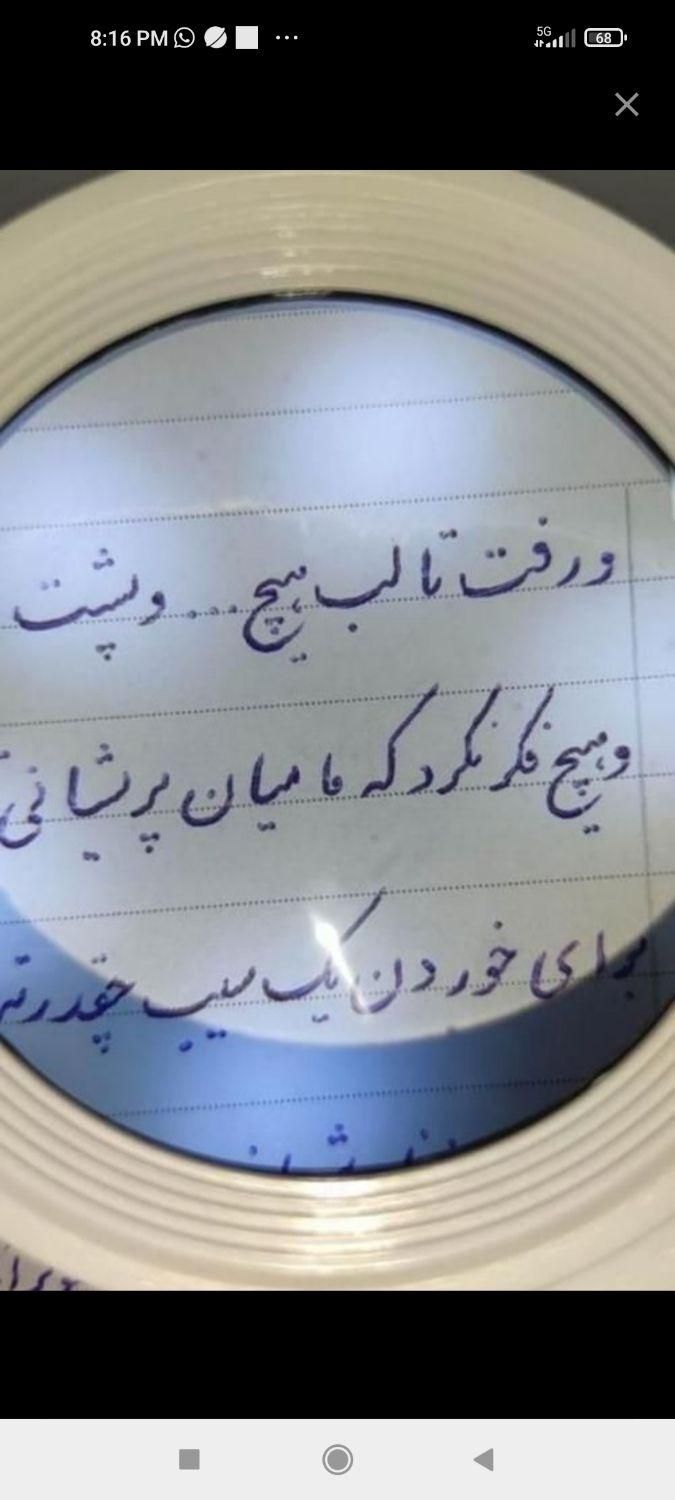 8:16 PM 5G 68
و رفت تا لب هیچ... و پشت
و هیچ فکر نکرد که ما میان پریشانی
برای خوردن یک سیب چقدر